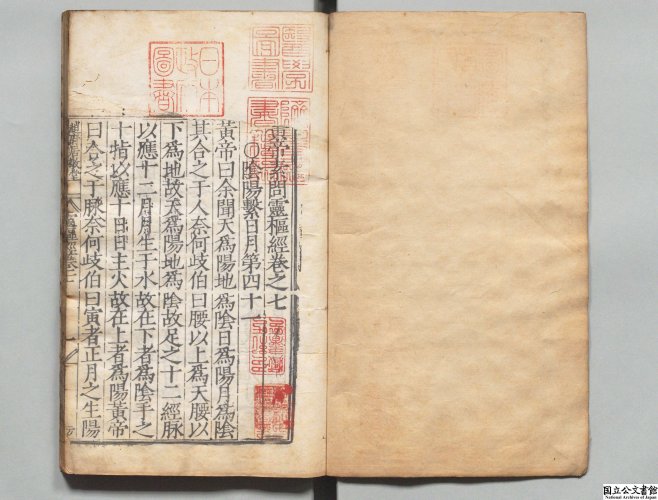 黃帝素問靈樞經卷之七
陰陽繫日月第四十一
黃帝曰余聞天為陽地為陰日為陽月為陰
其合之于人奈何歧伯曰腰以上為天腰以
下為地故天為陽地為陰故足之十二經脉
以應十二月月生于水故在下者為陰手之
十指以應十日日主火故在上者為陽黃帝
曰合之于脉奈何歧伯曰寅者正月之生陽
日本
政府
圖書
國立公文書館
National Archives of Japan